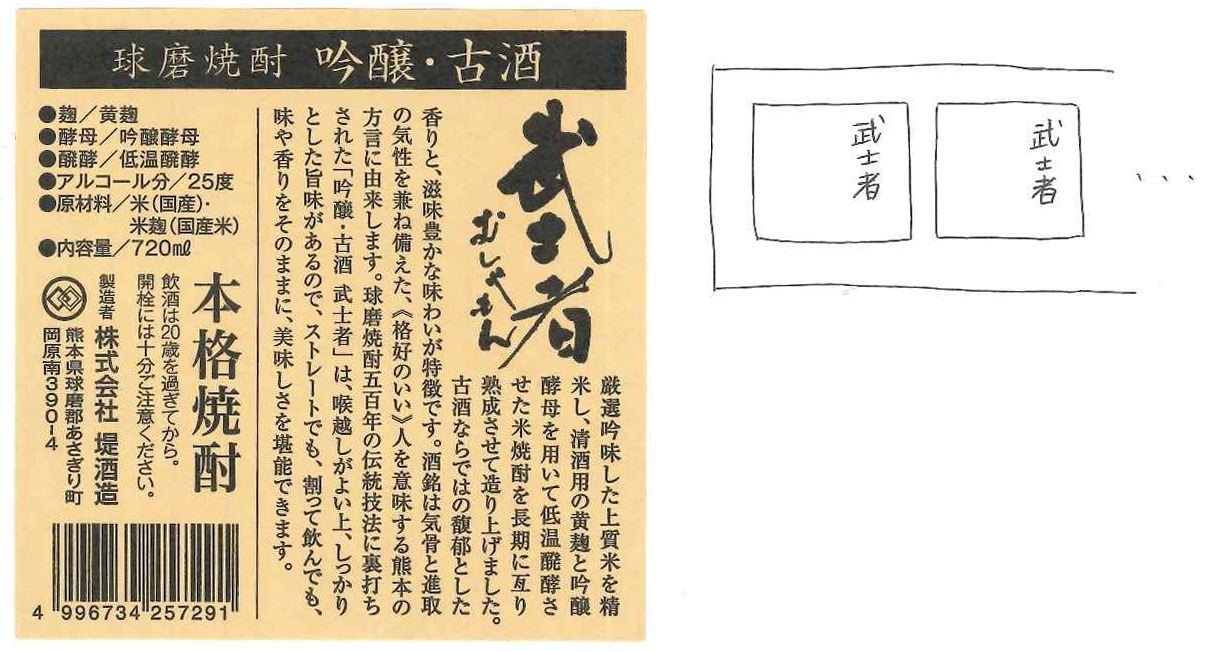 球磨焼酎 吟醸・古酒
武士者
むしゃもん
厳選吟味した上質米を精
米し、清酒用の黄麹と吟醸
酵母を用いて低温醗酵さ
せた米焼酎を長期に亙り
熟成させて造り上げました。
古酒ならではの馥郁とした
香りと、滋味豊かな味わいが特徴です。酒銘は気骨と進取
の気性を兼ね備えた、《格好のいい》人を意味する熊本の
方言に由来します。球磨焼酎五百年の伝統技法に裏打ち
された「吟醸・古酒 武士者」は、喉越しがよい上、しっかり
とした旨味があるので、ストレートでも、割って飲んでも、
味や香りをそのままに、美味しさを堪能できます。
●麹／黄麹
●酵母／吟醸酵母
●醗酵／低温醗酵
●アルコール分／25度
●原材料／米(国産)・
米麹(国産米)
●内容量／720㎖
本格焼酎
飲酒は20歳を過ぎてから。
開栓には十分ご注意ください。
製造者 株式会社 堤酒造
熊本県球磨郡あさぎり町
岡原南390-4
4 996734 257291
武士者
武士者
、、、